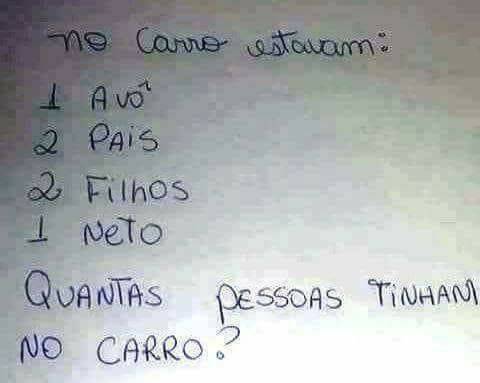 no carro estavam:
1 Avô
2 PAiS
2 FilHOS
1 NeTO
QUANTAS PESSOAS TiNHAM
NO CARRO?